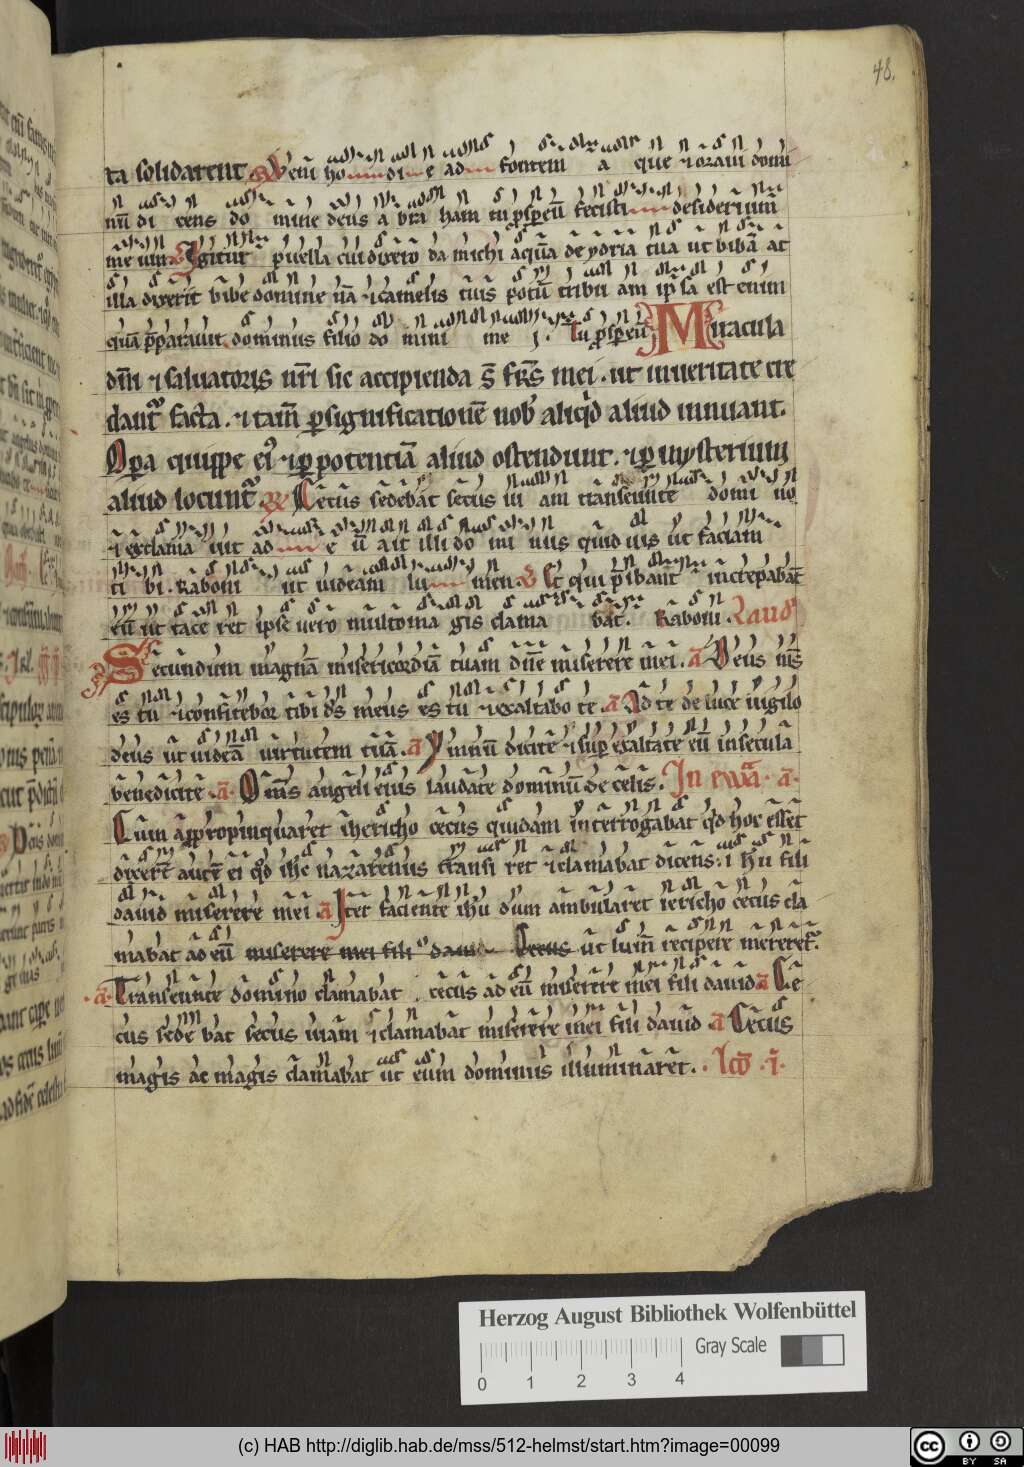 48.
ta solidarent R Veni ho di e ad fontem a que τ oraui domi
nū di cens do mine deus a bra ham tu ꝓspeū fecisti desiderium
me um V Igitur puella cui dixero da michi aquā de ydria tua ut bibā at
illa dixerit bibe domine nā τ camelis tuis potū tribu am ipsa est enim
quā p̄parauit dominus filio do mini me i. Tu ꝓspeū Miracula
dn̄i τ saluatoris nr̄i sic accipienda s̄ fr̄s mei. ut in ueritate cre
dant᷑ facta. τ tam̄ ꝑ significationē nob̄ aliqd aliud innuant.
Opa quippe ei᷒ τ ꝑ potentiā aliud ostendunt. τ ꝑ mysterium
aliud locunt᷑ R Cecus sedebat secus ui am transeunte domi no
τ exclama uit ad e ū ait illi do mi nus quid uis ut faciam
ti bi. Raboni ut uideam lu men V Et qui p̄ibant increpabāt
eū ut tace ret ipse uero multo ma gis clama bat. Raboni. Laud᷒
Secundum magnā misericordiā tuam dn̄e miserere mei. a Deus m̄s
es tu τ confitebor tibi ds̄ meus es tu τ exaltabo te. a Ad te de luce uigilo
deus ut uideā uirtutem tuā. a Ymnū dicite τ sup exaltate eū in secula
benedicite. a Om̄s angeli eius laudate dominū de celis. In ewā. a
Cum appropinquaret ihericho cecus quidam interrogabat qd hoc esset
dixert̄ autē ei qd ihc nazarenus transi ret τ clamabat dicens: ihu fili
dauid miserere mei a Iter faciente ihu dum ambularet iericho cecus cla
mabat ad eū miserere mei fili daui Cecus ut lumn̄ recipere meretet᷑.
a Transeunte domino clamabat cecus ad eū miserere mei fili dauid a Ce
cus sede bat secus uiam τ clamabat miserere mei fili dauid a Cecus
magis ac magis clamabat ut eum dominus illuminaret. Lcō .i.
Herzog August Bibliothek Wolfenbüttel
Gray Scale
0 1 2 3 4
(c) HAB http://diglib.hab.de/mss/512-helmst/start.htm?image=00099
cc BY SA